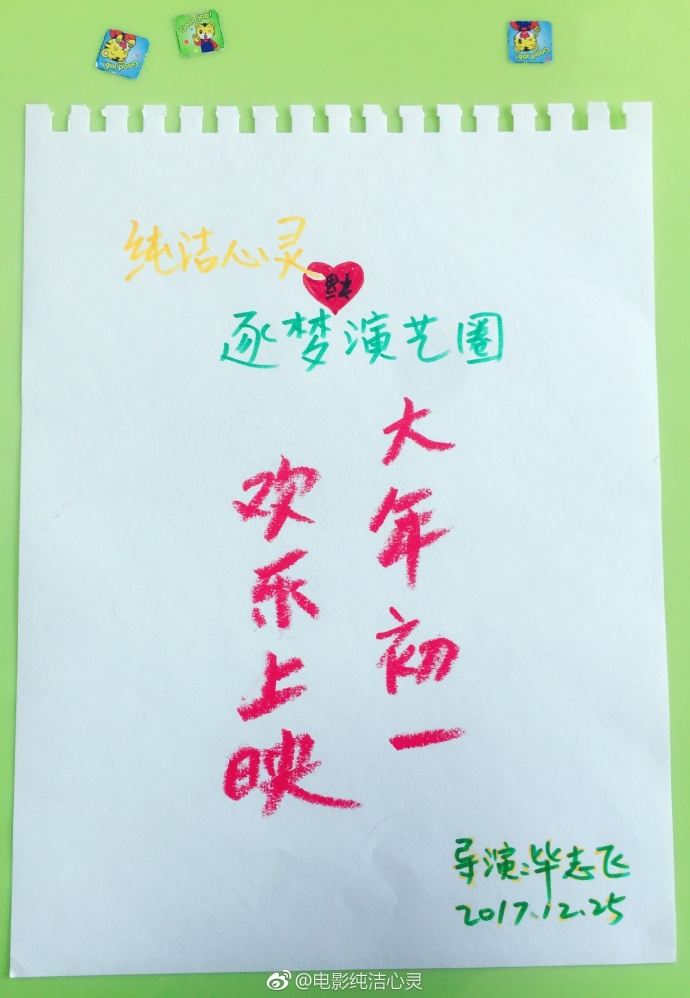 Good job!
Good job!
Good job!
纯洁心灵
逐梦演艺圈
大年初一
欢乐上映
导演:毕志飞
2017.12.25
@电影纯洁心灵